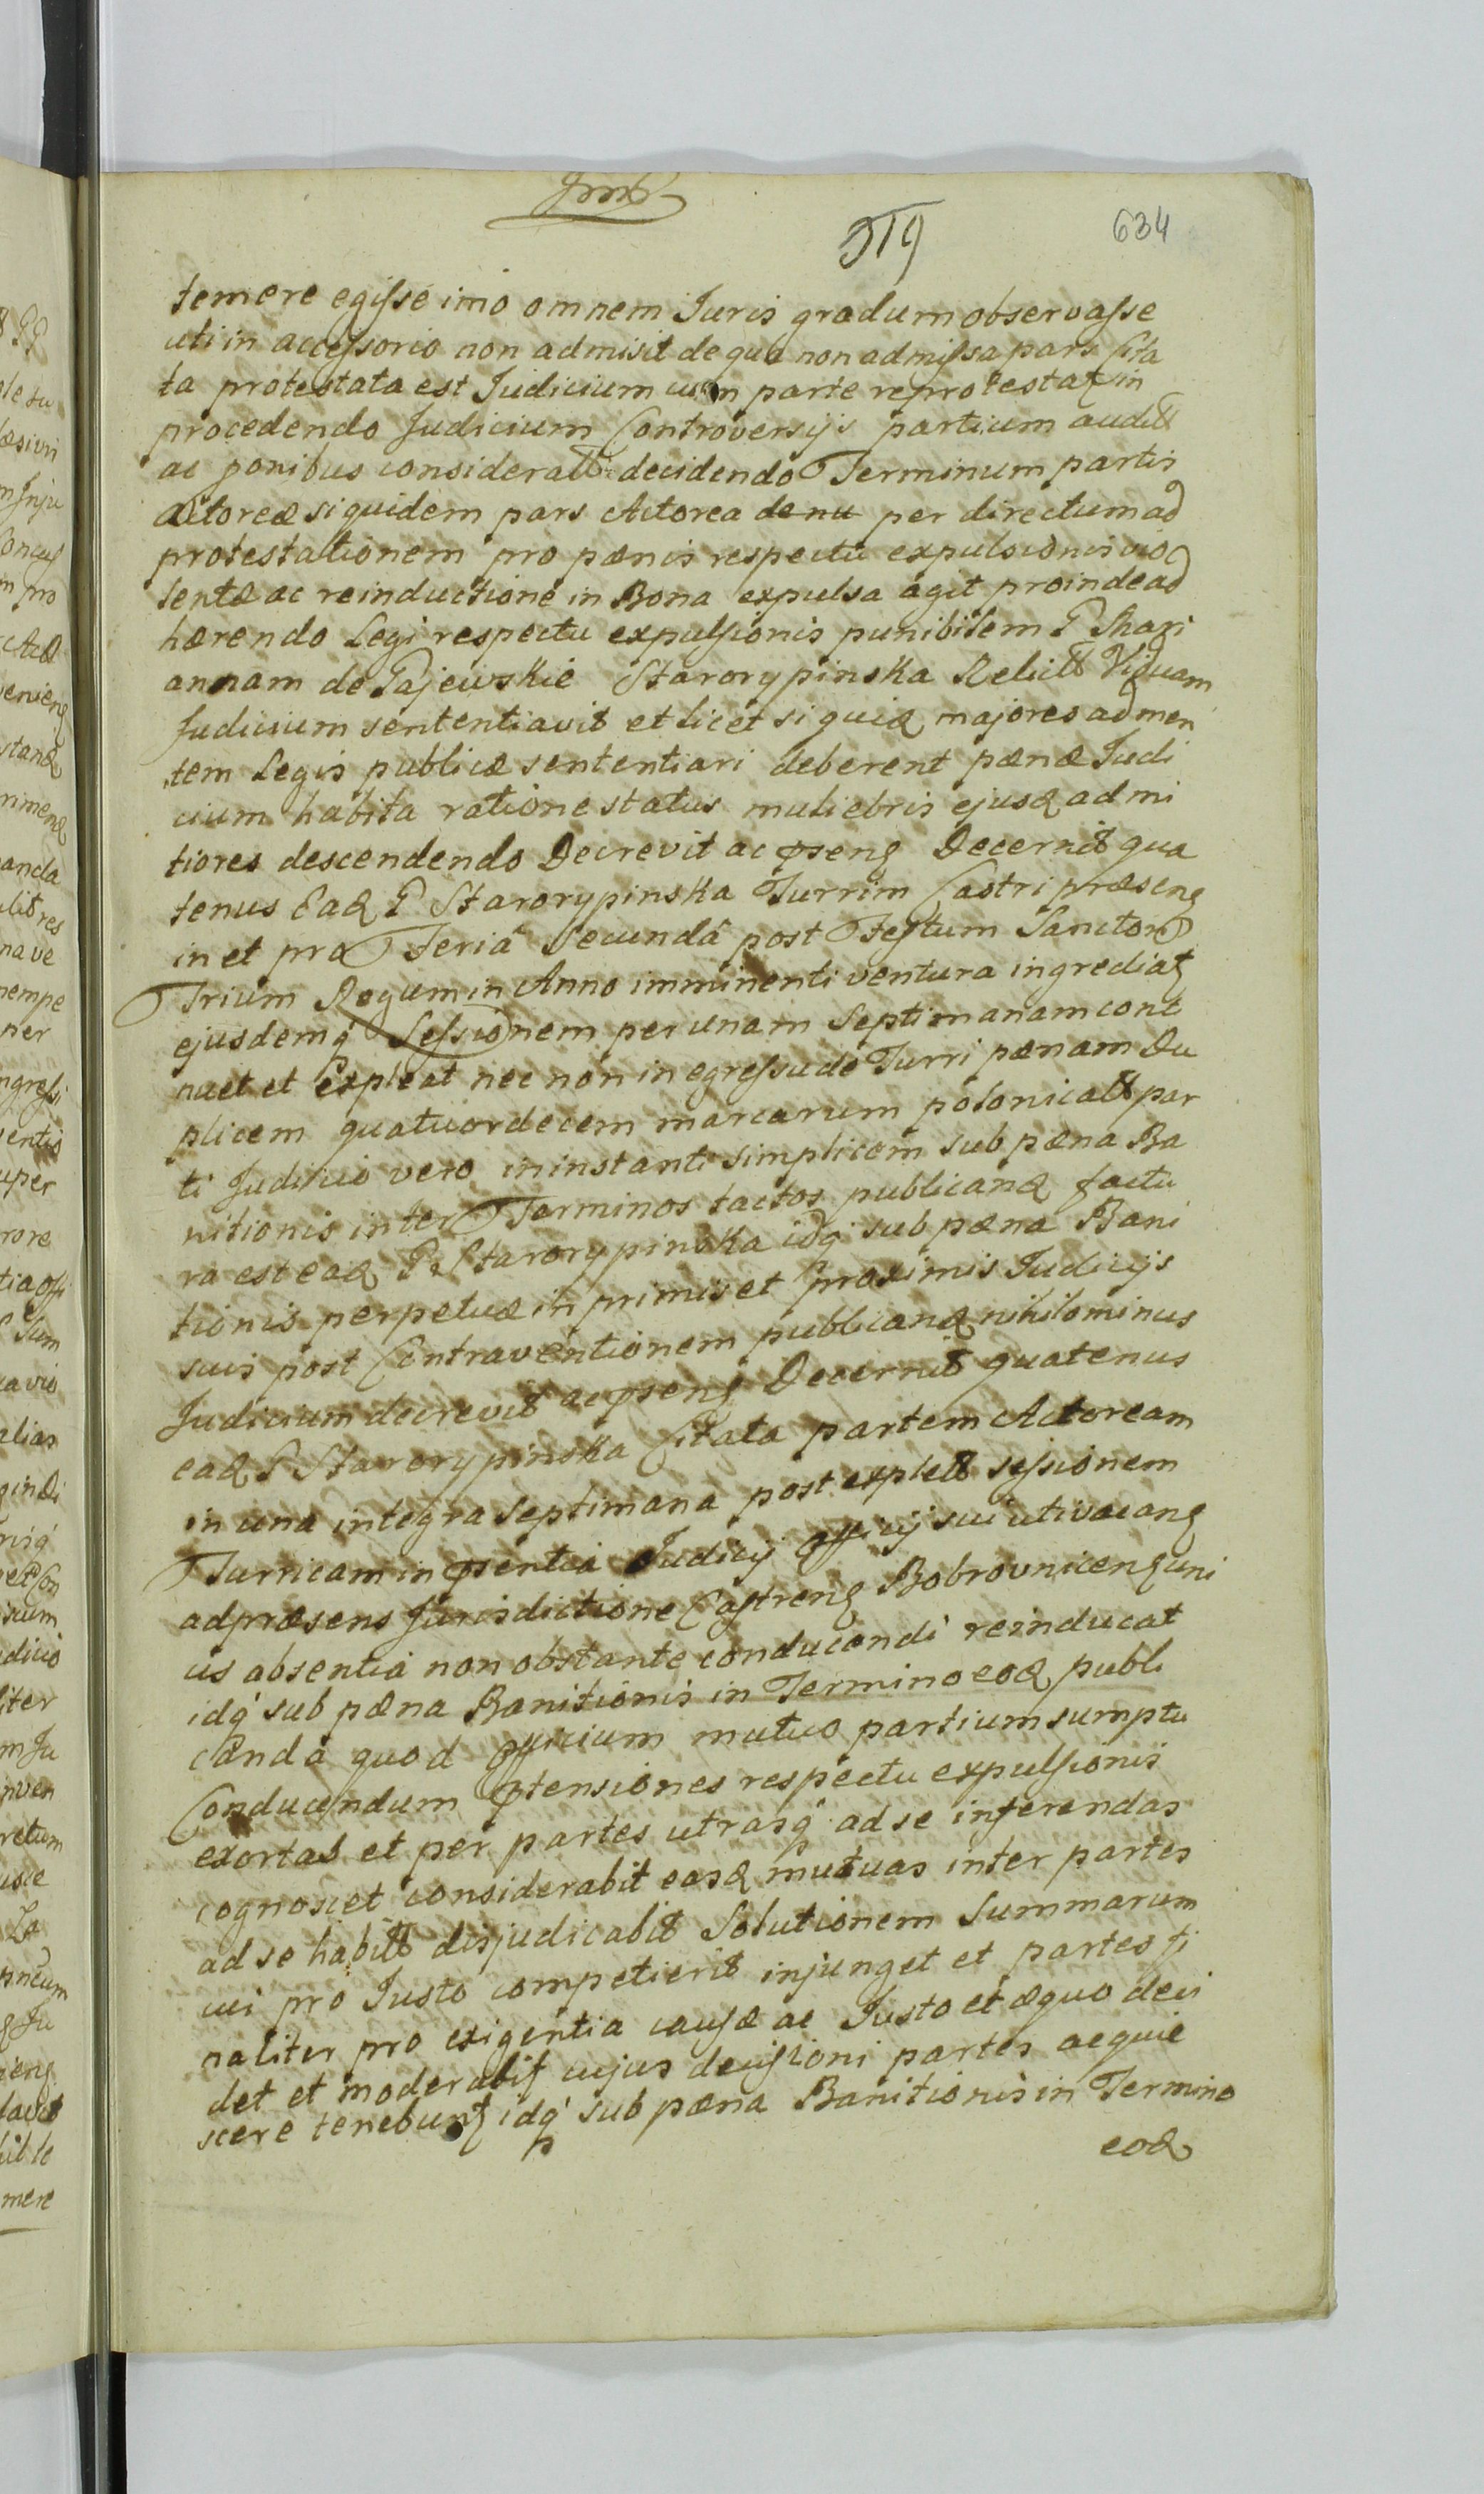 519
634
temere egisse imo omnem Juris gradum observasse
uti in accessorio non admisit de qua non admissa pars Cita
ta protestata est Judicium cum parte reprotestat in
procedendo Judicium Controversijs partium audit
ac ponibus considerat decidendo Terminum partis
Actoreæ siquidem pars Actorea de nu per directum ad
protestationem pro pœnis respectu expulsionis vio
lentæ ac reinductione in Bona expulsa agit proinde ad
hærendo Legi respectu expulsionis punibilem G Mari
annam de Gajewskie Starorypinska Relict Viduam
Judicium sententiavit et licet siquiæ majores ad men
tem Legis publicæ sententiari deberent pœnæ Judi
cium habita ratione status muliebris ejusd ad mi
tiores descendendo Decrevit ac pseng Decernit qua
tenus Ead G Starorypinska Turrim Castri præseng
in et pro Feriâ Secundâ post Festum Sanctor
Trium Regum in Anno imminenti ventura ingrediat
ejusdemq Sessionem per unam Septimanam cont
nuet et Expleat nec non in egressu de Turri pœnam Du
plicem quatuordecem marcarum polonical par
ti Judicio vero in instanti simplicem sub pœna Ba
nitionis inter Terminos tactos publicand factu
ra est ead G Starorypinska idq sub pœna Bani
tionis perpetuæ in primis et proximis Judicijs
suis post Contraventionem publicand nihilominus
Judicium decrevit ac pseng Decernit quatenus
ead G Starorypinska Citata partem Actoream
in una integra Septimana post explet sessionem
Turricam in psentia Judicij Officij sui uti vacang
ad præsens Jurisdictione Castreng Bobrovniceng uni
us absentia non obstante conducendi reinducat
idq sub pœna Banitionis in Termino eod publi
canda quod Officium mutuo partium sumptu
Conducendum ptensiones respectu expulsionis
exortas et per partes utrasq ad se inferendas
cognoscet considerabit easd mutuas inter partes
ad se habit disjudicabit Solutionem Summarum
cui pro Justo competierit injunget et partes fi
naliter pro exigentia causæ ac Justo et æquo deci
det et moderabit cujus decisioni partes acquie
scere tenebunt idq sub pœna Banitionis in Termino
eod